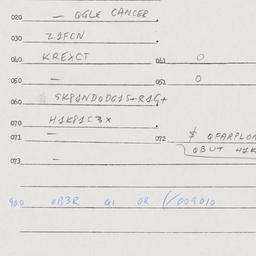 020 — QGLE CANCER .
030 Z1FCN .
040 KREXCT 041 O
050 — 051 O
060 SKP1ND0DG1S+R1G+
070 H1KP1C3X .
071 — 072 $ QFARPLON
QBUT H1K
073 —
900 0B3R Q1 OR (/009010